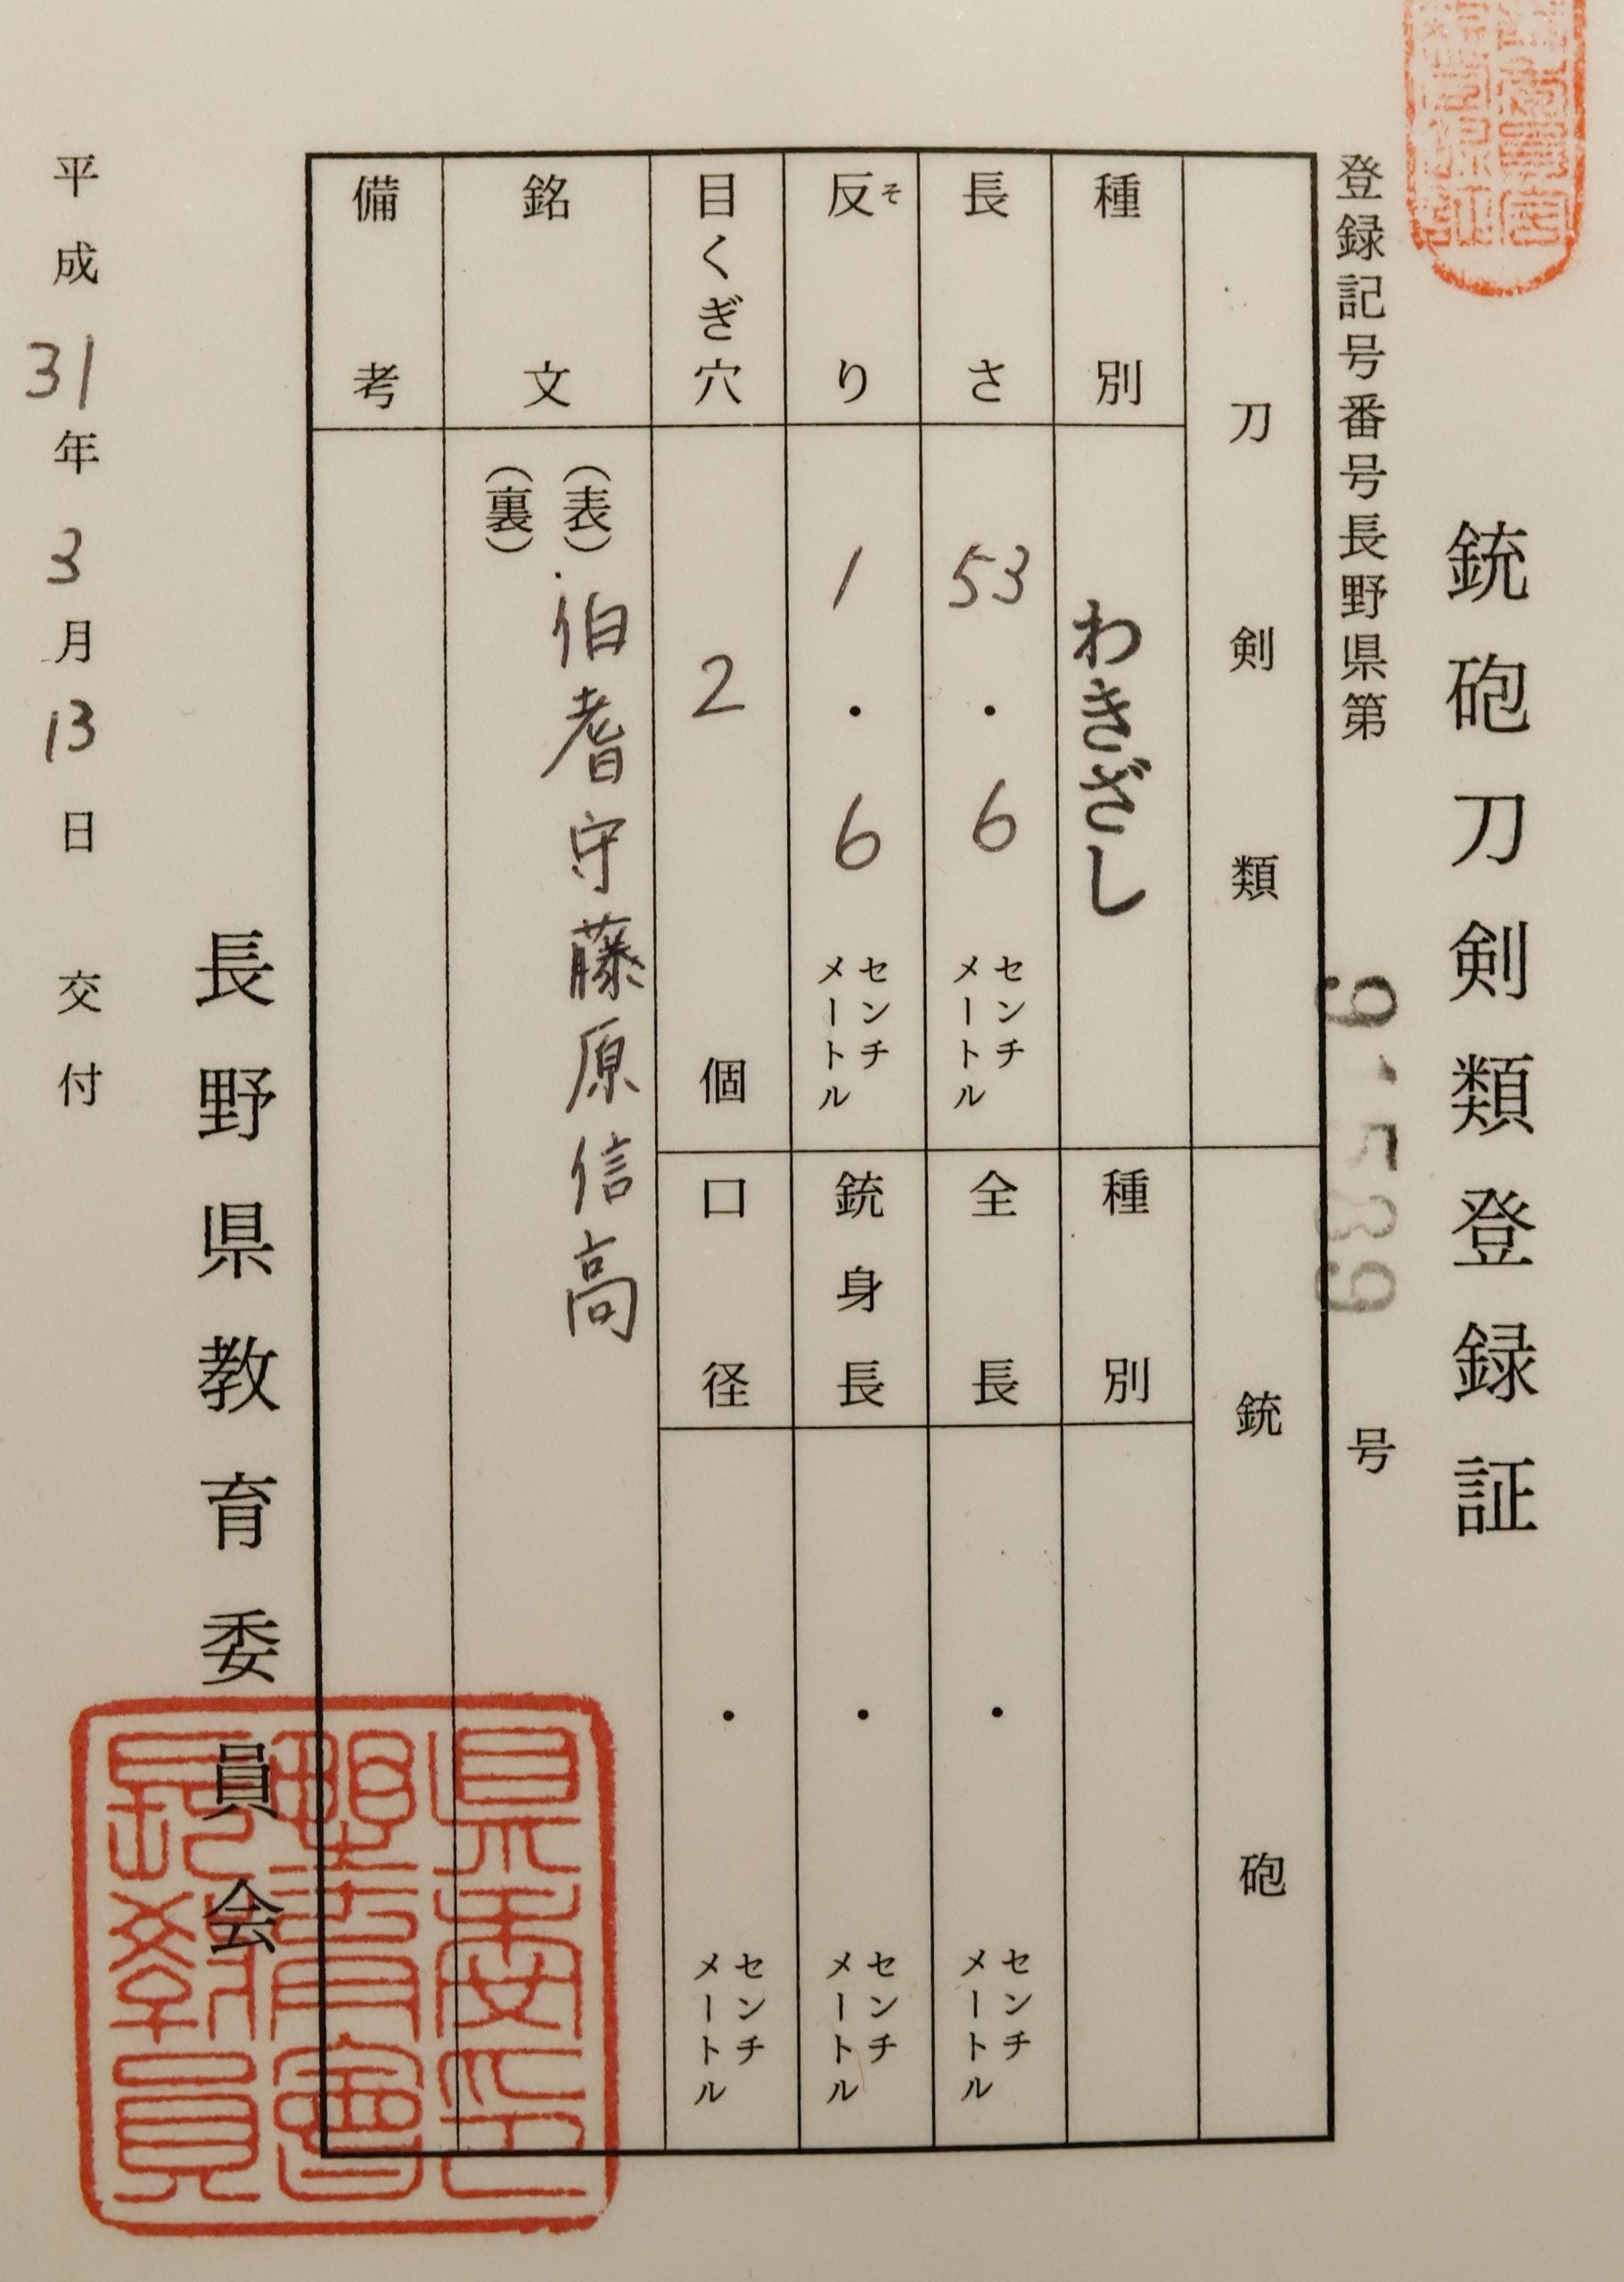 銃砲刀剣類登録証
登録記号番号長野県第 91589 号
刀剣類
種別
わきざし
長さ
53.6センチメートル
反り
そ
1.6センチメートル
目くぎ穴
2個
銃砲
種別
全長
・センチメートル
銃身長
・センチメートル
口径
・センチメートル
銘文
(表)伯耆守藤原信高
(裏)
備考
長野県教育委員会
平成31年3月13日交付